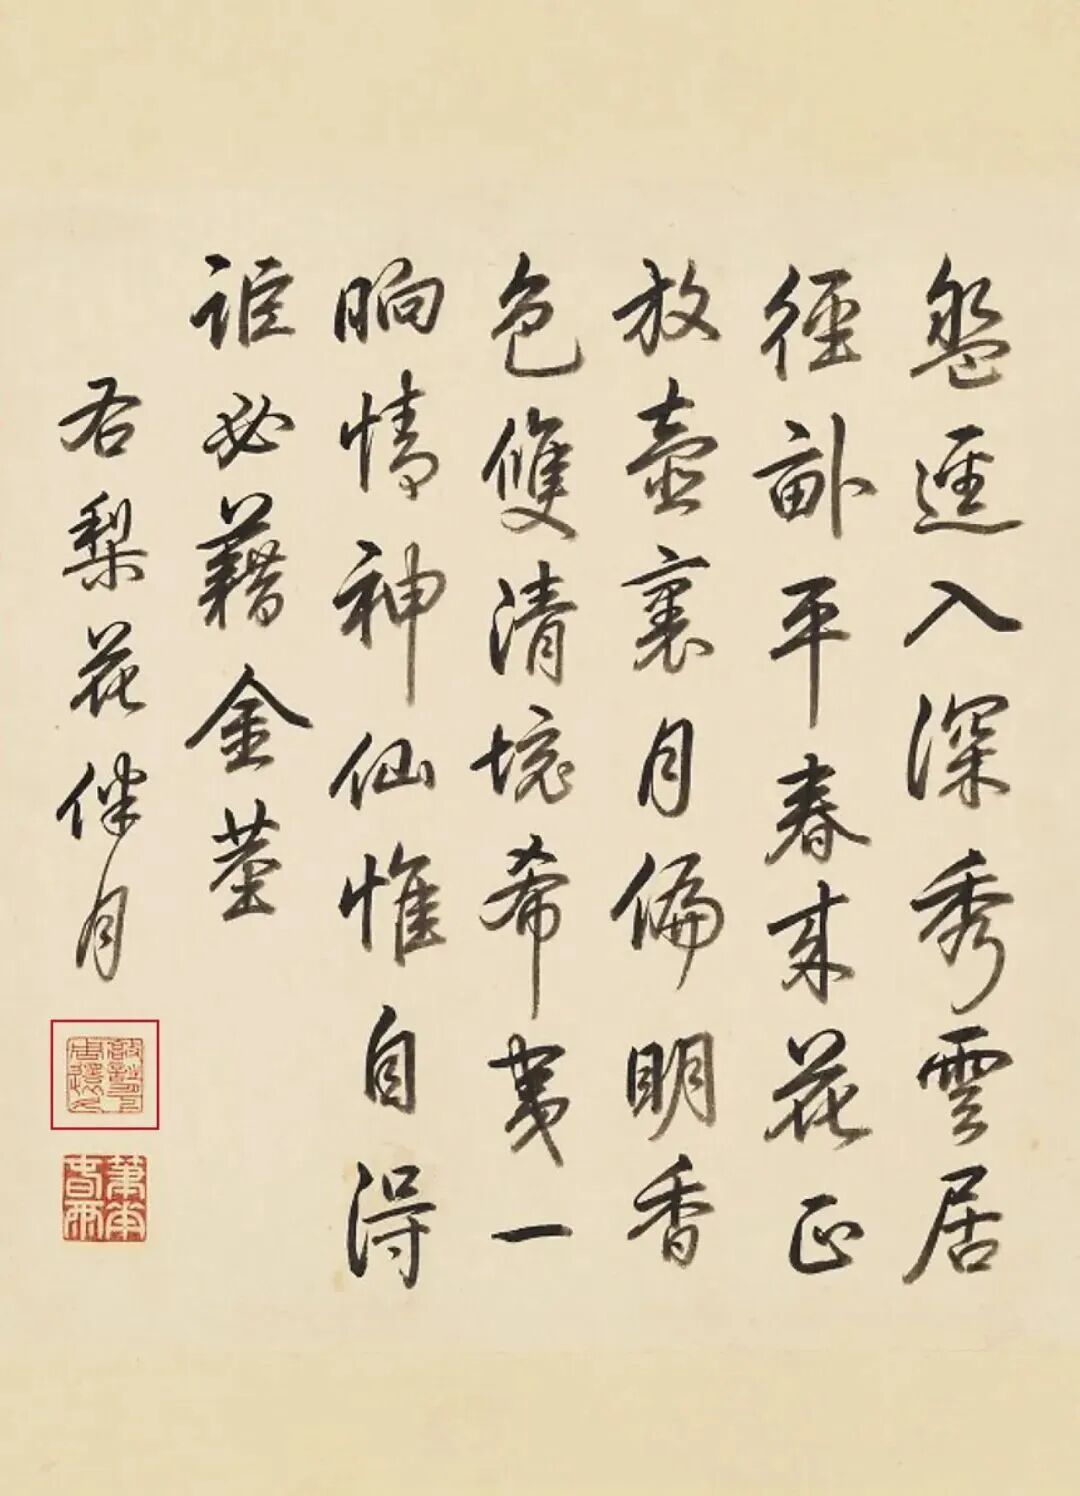 盤逕入深秀雲居
徑畝平春来花正
放壺裏月偏明香
色雙清境希夷一
晌情神仙惟自得
詎必藉金莖
右梨花伴月